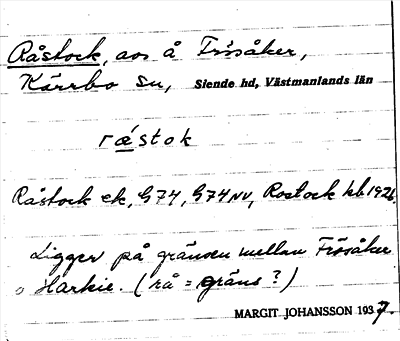 Råstock, aos å Frösåker,
Kärrbo sn, Siende hd, Västmanlands län
råstok
Råstock ek, G74, G74NV, Rostock hb 1926.
Ligger på gränsen mellan Frösåker
o Harkie. (rå = gräns?)
MARGIT JOHANSSON 1937.